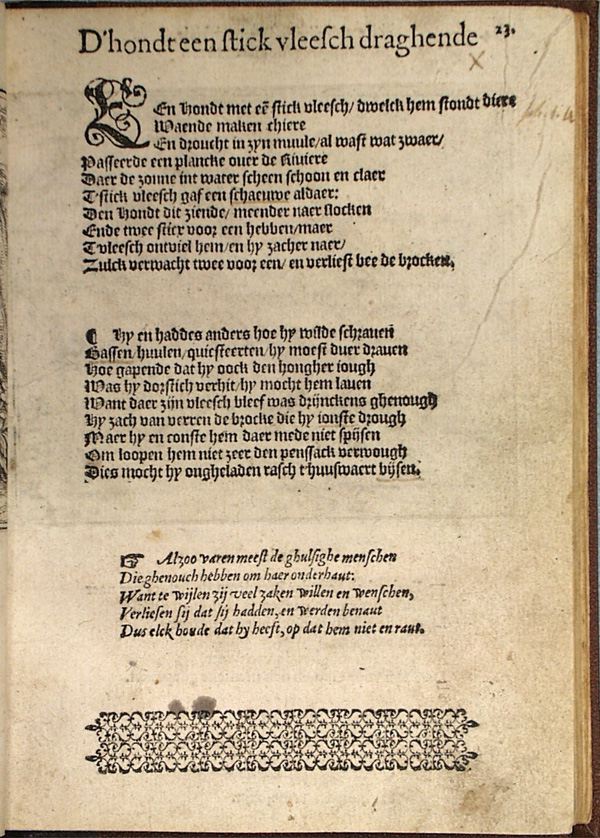 D'hondt een stick vleesch draghende 23.
EEn Hondt met eē stick vleesch/ dwelck hem stondt diere
Waende maken chiere
En droucht in zyn muule/ al wast wat zwaer/
Passeerde een plancke ouer de Riviere
Daer de zonne int water scheen schoon en claer
T'stick vleesch gaf een schaeuwe aldaer:
Den Hondt dit ziende/ meender naer slocken
Ende twee sticx voor een hebben/ maer
T'vleesch ontviel hem/ en hy zacher naer/
Zulck verwacht twee voor een/ en verliest bee de brocken.
¶ Hy en haddes anders hoe hy wilde schrauen
Bassen/ huulen/ quiesteerten/ hy moest duer drauen
Hoe gapende dat hy oock den hongher iough
Was hy dorstich verhit/ hy mocht hem lauen
Want daer zijn vleesch bleef was drijnckens ghenough
Hy zach van verren de brocke die hy ionste drough
Maer hy en conste hem daer mede niet spijsen
Om loopen hem niet zeer den penssack verwough
Dies mocht hy ongheladen rasch t'huuswaert bijsen.
☞ Alzoo varen meest de ghulsighe menschen
Die ghenouch hebben om haer onderhaut:
Want te wijlen zij veel zaken willen en wenschen,
Verliesen sij dat sij hadden, en werden benaut
Dus elck houde dat hy heeft, op dat hem niet en raut.